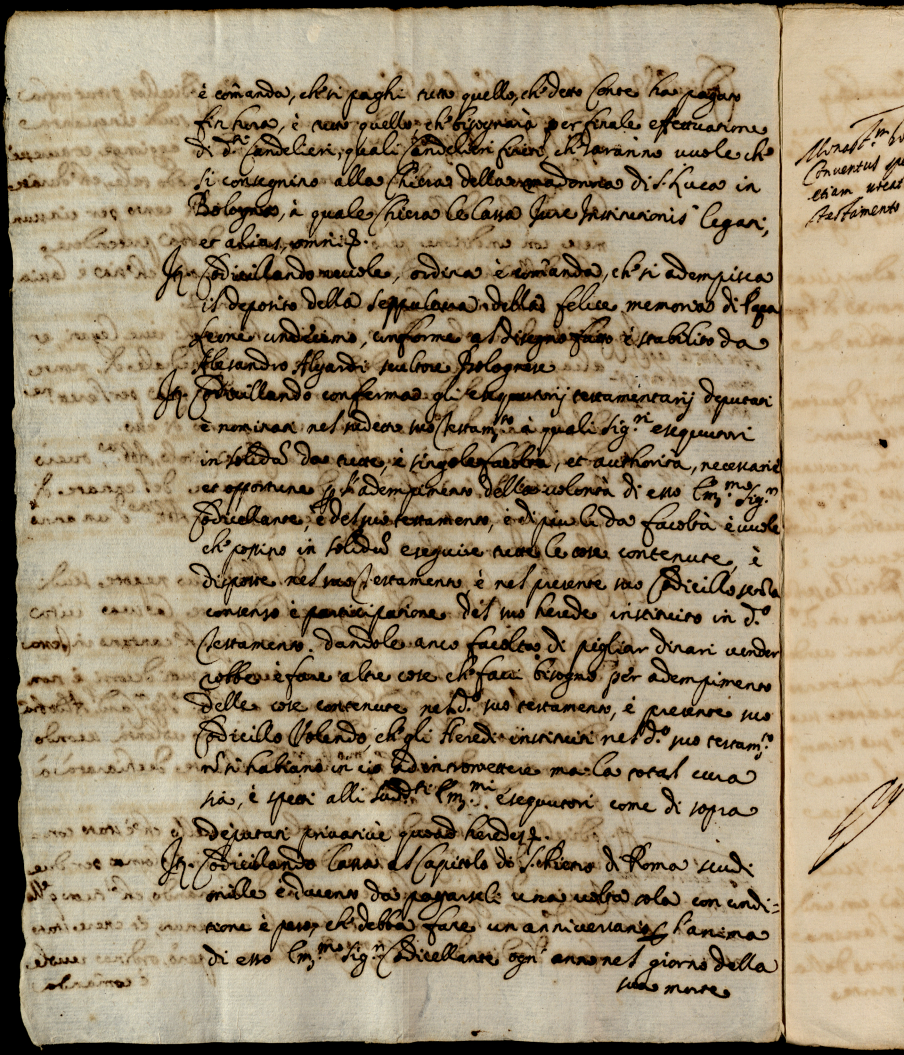 è comanda, che si paghi tutto quello, che detto Conte ha pagato
fin hora, è tutto quello, che bisognarà per finale effettuatione
di d.ti Candelieri, quali Candelieri finiti che saranno vuole che
si consegnino alla Chiesa della madonna di S. Luca in
Bologna, à quale Chiesa le lassa Jure Institutionis legati,
et alias, omni
It. Codicillando vuole, ordina è comanda, che si adempisca
il deposito della seppultura della felice memoria di Papa
Leone undecimo, conforme al disegno fatto è stabilito da
Alesandro Algardi scultore Bolognese
It. Codicillando conferma gli esequutorij testamentarij deputati
è nominati nel sudetto suo testam.to à quali Sig.ri esequutori
in solidū da tutte, è singole facoltà, et authorità, necessarie
et opportune p l'adempimento della volontà di esso Em.mo Sig.r
Codicellante, è del suo testamento, è di piu li da facoltà è vuole
che possino in solidū eseguire tutte le cose contenute, è
disposte nel suo Testamento è nel presente suo Codicillo senza
consenso è participatione del suo herede instituito in d.o
Testamento. dandole anco facoltà di pigliar dinari vender
robbe è fare altre cose che facci bisogno per adempimento
delle cose contenute nel d.o suo testamento, è presente suo
Codicillo Volendo, che gli Heredi instituiti nel d.o suo testam.to
nō si habbiano in ciò ad intromettere ma la total cura
sia, è spetti alli sudd.ti Em.mi esequutori come di sopra
deputati privativè quoad heredes
It. Codicillando lassa al Capitolo di S. Pietro di Roma scudi
mille è ducento da pagarseli una volta sola con condi=
tione è peso, che debba fare un anniversario p l'anima
di esso Em.mo Sig.r Codicellante ogn' anno nel giorno della
sua morte
Conventus
etiam
testamento